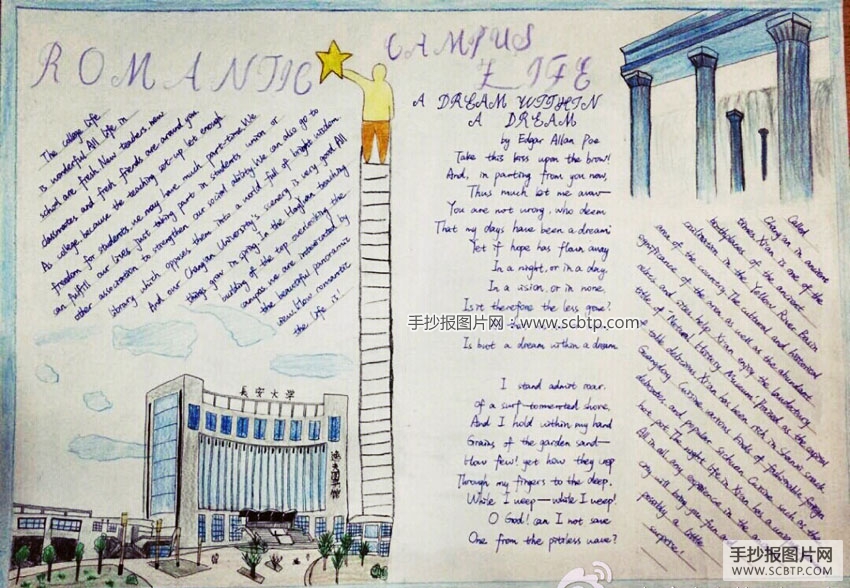 ROMANTIC CAMPUS
LIFE
The college life
is wonderful. All life in
school are fresh. New teachers, new
classmates and fresh friends are around you
At college, because the teaching set-up let enough
freedom for students, we may have much part-time. We
can fulfill our lives just taking part in students' union or
other association to strengthen our social ability. We can also go to
library which opposes them into a world full of bright wisdom.
And our Chang'an University's scenery is very good. All
things grow in spring. In the Mingyuan teaching
building of the top overlooking the
campus, we are intoxicated by
the beautiful panoramic
view. How romantic
the life is!
A DREAM WITHIN
A DREAM
by Edgar Allan Poe
Take this kiss upon the brow!
And, in parting from you now,
Thus much let me avow
You are not wrong, who deem
That my days have been a dream;
Yet if hope has flown away
In a night, or in a day,
In a vision, or in none,
Is it therefore the less gone?
手抄报图片网:www.scbtp.com
Is but a dream within a dream
I stand admit roar,
Of a surf-tormented shore,
And I hold within my hand
Grains of the garden sand—
How few! yet how they weep
Through my fingers to the deep,
While I weep—while I weep!
O God! can I not save
One from the pitiless wave?
Called
Chang'an in ancient
times, Xi'an is one of the
birthplaces of the ancient
civilization in the Yellow River Basin
area of the country. The cultural and historical
significance of the area, as well as the abundant
relics and sites, help Xi'an enjoy the laudatory
title of "Natural History Museum". Praised as the capital
of table delicious, Xi'an has been rich in Shaanxi snack
Guangdong Cuisine, various kinds of fashionable foreign
delicates, and popular Sichuan Cuisine such as the
hot pot. The night life in Xi'an has a
All in all, any experience in the
city will bring you fun and
possibly a little
surprise!
长安大学
逸夫图书馆
手抄报图片网
WWW.SCBTP.COM